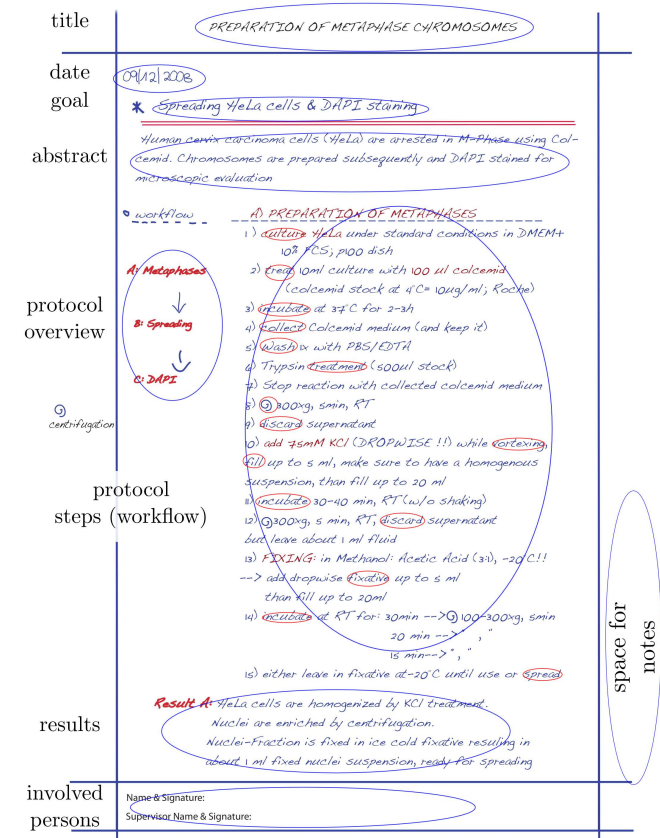 title
PREPARATION OF METAPHASE CHROMOSOMES
date
09/12/2008
goal
* Spreading HeLa cells & DAPI staining
abstract
Human cervix carcinoma cells (HeLa) are arrested in M-Phase using Col-
cemid. Chromosomes are prepared subsequently and DAPI stained for
microscopic evaluation
workflow
A) PREPARATION OF METAPHASES
1) culture HeLa under standard conditions in DMEM+
10% FCS; p100 dish
A: Metaphases
2) treat 10ml culture with 100 ul colcemid
(colcemid stock at 4°C= 10ug/ml; Roche)
protocol
overview
3) incubate at 37°C for 2-3h
B: Spreading
4) collect Colcemid medium (and keep it)
5) Wash 1x with PBS/EDTA
6) Trypsin treatment (500ul stock)
C: DAPI
7) Stop reaction with collected colcemid medium
8) 300xg, 5min, RT
centrifugation
9) discard supernatant
10) add 75mM KCl (DROPWISE !!) while vortexing,
fill up to 5 ml, make sure to have a homogenous
suspension, than fill up to 20 ml
protocol
steps (workflow)
11) incubate 30-40 min, RT (w/o shaking)
12) 300xg, 5 min, RT, discard supernatant
but leave about 1 ml fluid
13) FIXING: in Methanol: Acetic Acid (3:1), -20°C!!
--> add dropwise fixative up to 5 ml
than fill up to 20ml
14) incubate at RT for: 30min --> 100-300xg, 5min
20 min --> " , "
15 min--> " , "
15) either leave in fixative at-20°C until use or spread
space for
notes
results
Result A: HeLa cells are homogenized by KCl treatment.
Nuclei are enriched by centrifugation.
Nuclei-Fraction is fixed in ice cold fixative resuling in
about 1 ml fixed nuclei suspension, ready for spreading
involved
persons
Name & Signature:
Supervisor Name & Signature: